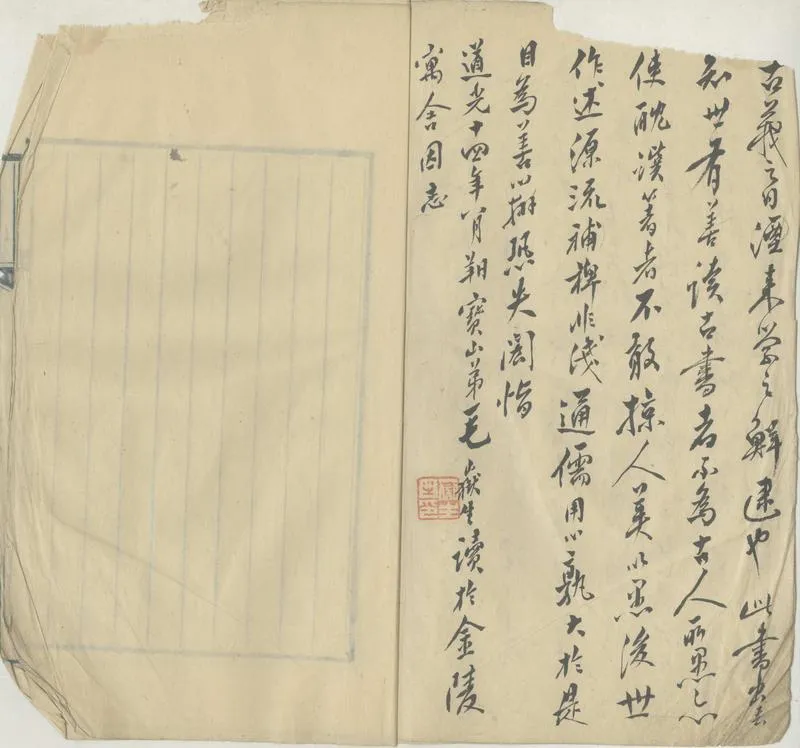 古義之日湮来學之鮮逮也此書出吾
知世有善讀古書者不為古人所愚亦
使耽譔著者不敢掠人美以愚後世
作述源流補裨非淺通儒用心孰大於是
目為善恐失恉
道光十四年八月朔寶山弟毛嶽生讀於金陵
寓舍因志